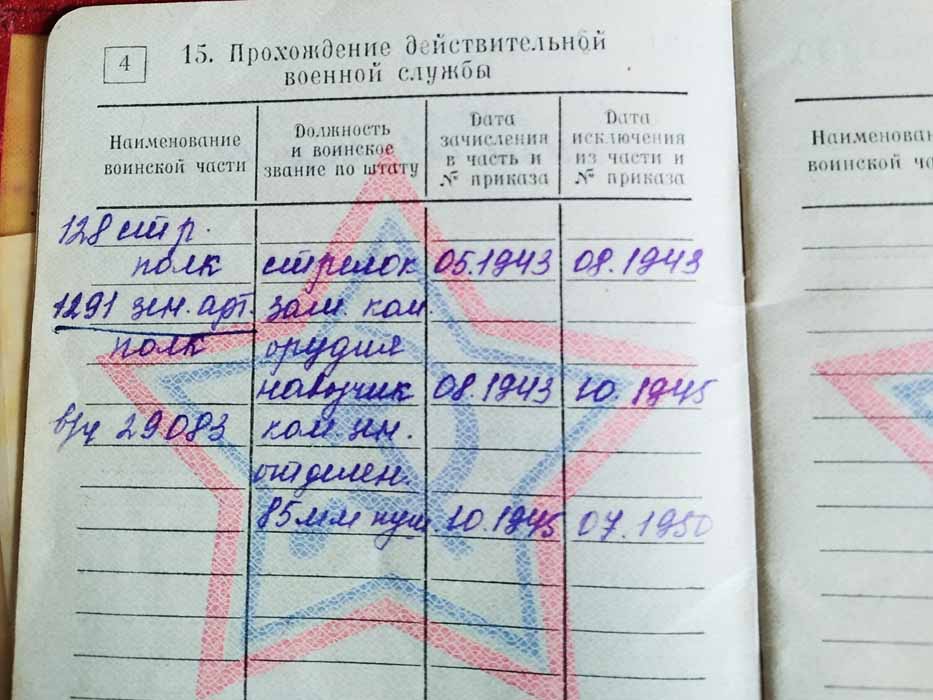 4
15. Прохождение действительной
военной службы
Наименование воинской части
Должность и воинское звание по штату
Дата зачисления в часть и № приказа
Дата исключения из части и № приказа
128 стр.
полк стрелок 05.1943 08.1943
1291 зен. арт. зам. ком.
полк орудия
наводчик 08.1943 10.1945
в/ч 29083 ком. зен.
отделен.
85 мм пуш. 10.1945 07.1950
Наименован
воинской ча